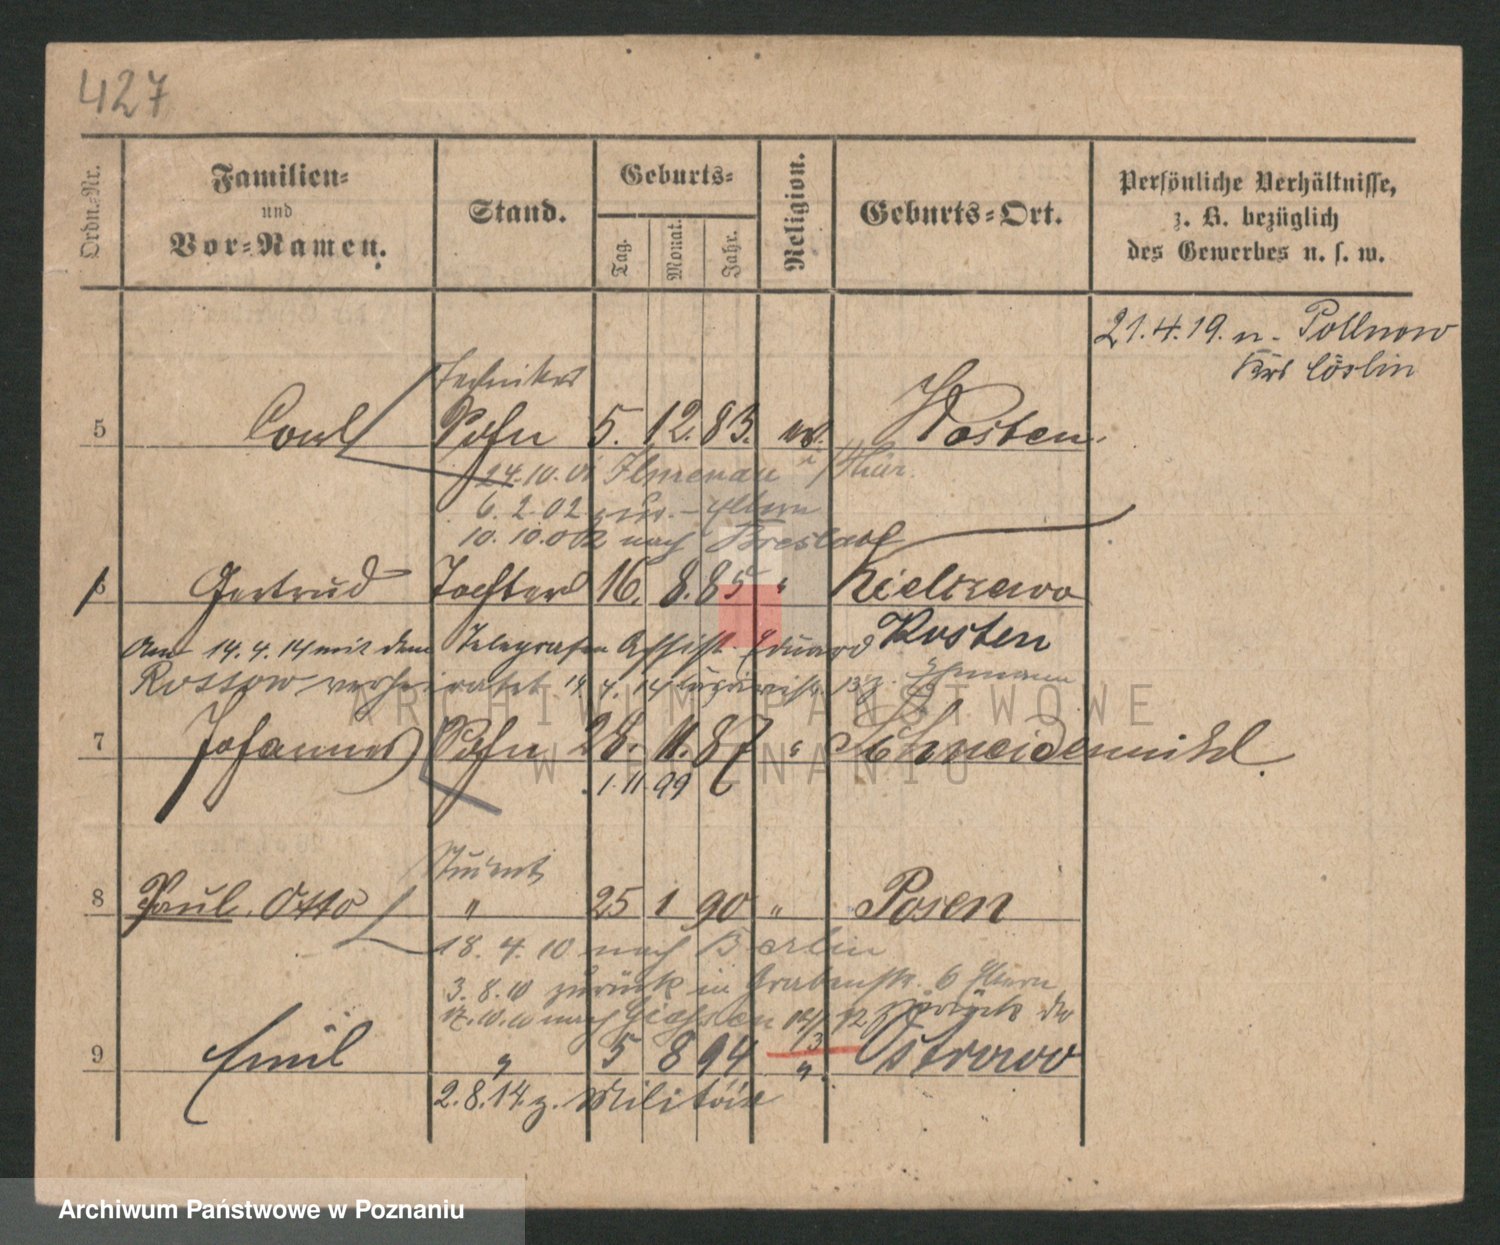 427
Ordn.-Nr.
Familien-
und
Vor-Namen.
Stand.
Geburts-
Tag.
Monat.
Jahr.
Religion.
Geburts-Ort.
Persönliche Verhältnisse,
z. B. bezüglich
des Gewerbes u. s. w.
21.4.19. n. Pollnow
Krs Cöslin
Techniker
5 Carl Sohn 5. 12. 83. ev. Kosten.
24.10.01 Ilmenau i/Thür.
6.2.02 zur. Eltern
10.10.02 nach Breslau
6 Gertrud Tochter 16. 8. 85 " Kielczewo
Kosten
Am 14.4.14 mit dem Telegrafen Assist. Eduard
Rossow verheiratet 14.4.14 Ehemann
7 Johannes Sohn 28. 11. 87 " Schneidemühl.
1.11.99
Student
8 Paul, Otto " 25 1 90 " Posen
18.4.10 nach Berlin
3.8.10 zurück in Grabenstr. 6 Eltern
17.10.10 nach Giessen zurück
9 Emil " 5 8 94 " Ostrowo
2.8.14. z. Militär
ARCHIWUM PAŃSTWOWE
W POZNANIU
Archiwum Państwowe w Poznaniu